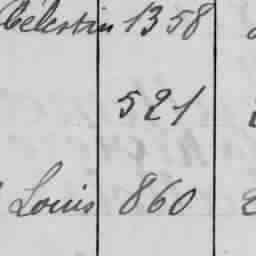 Célestin 1358
521
Louis 860